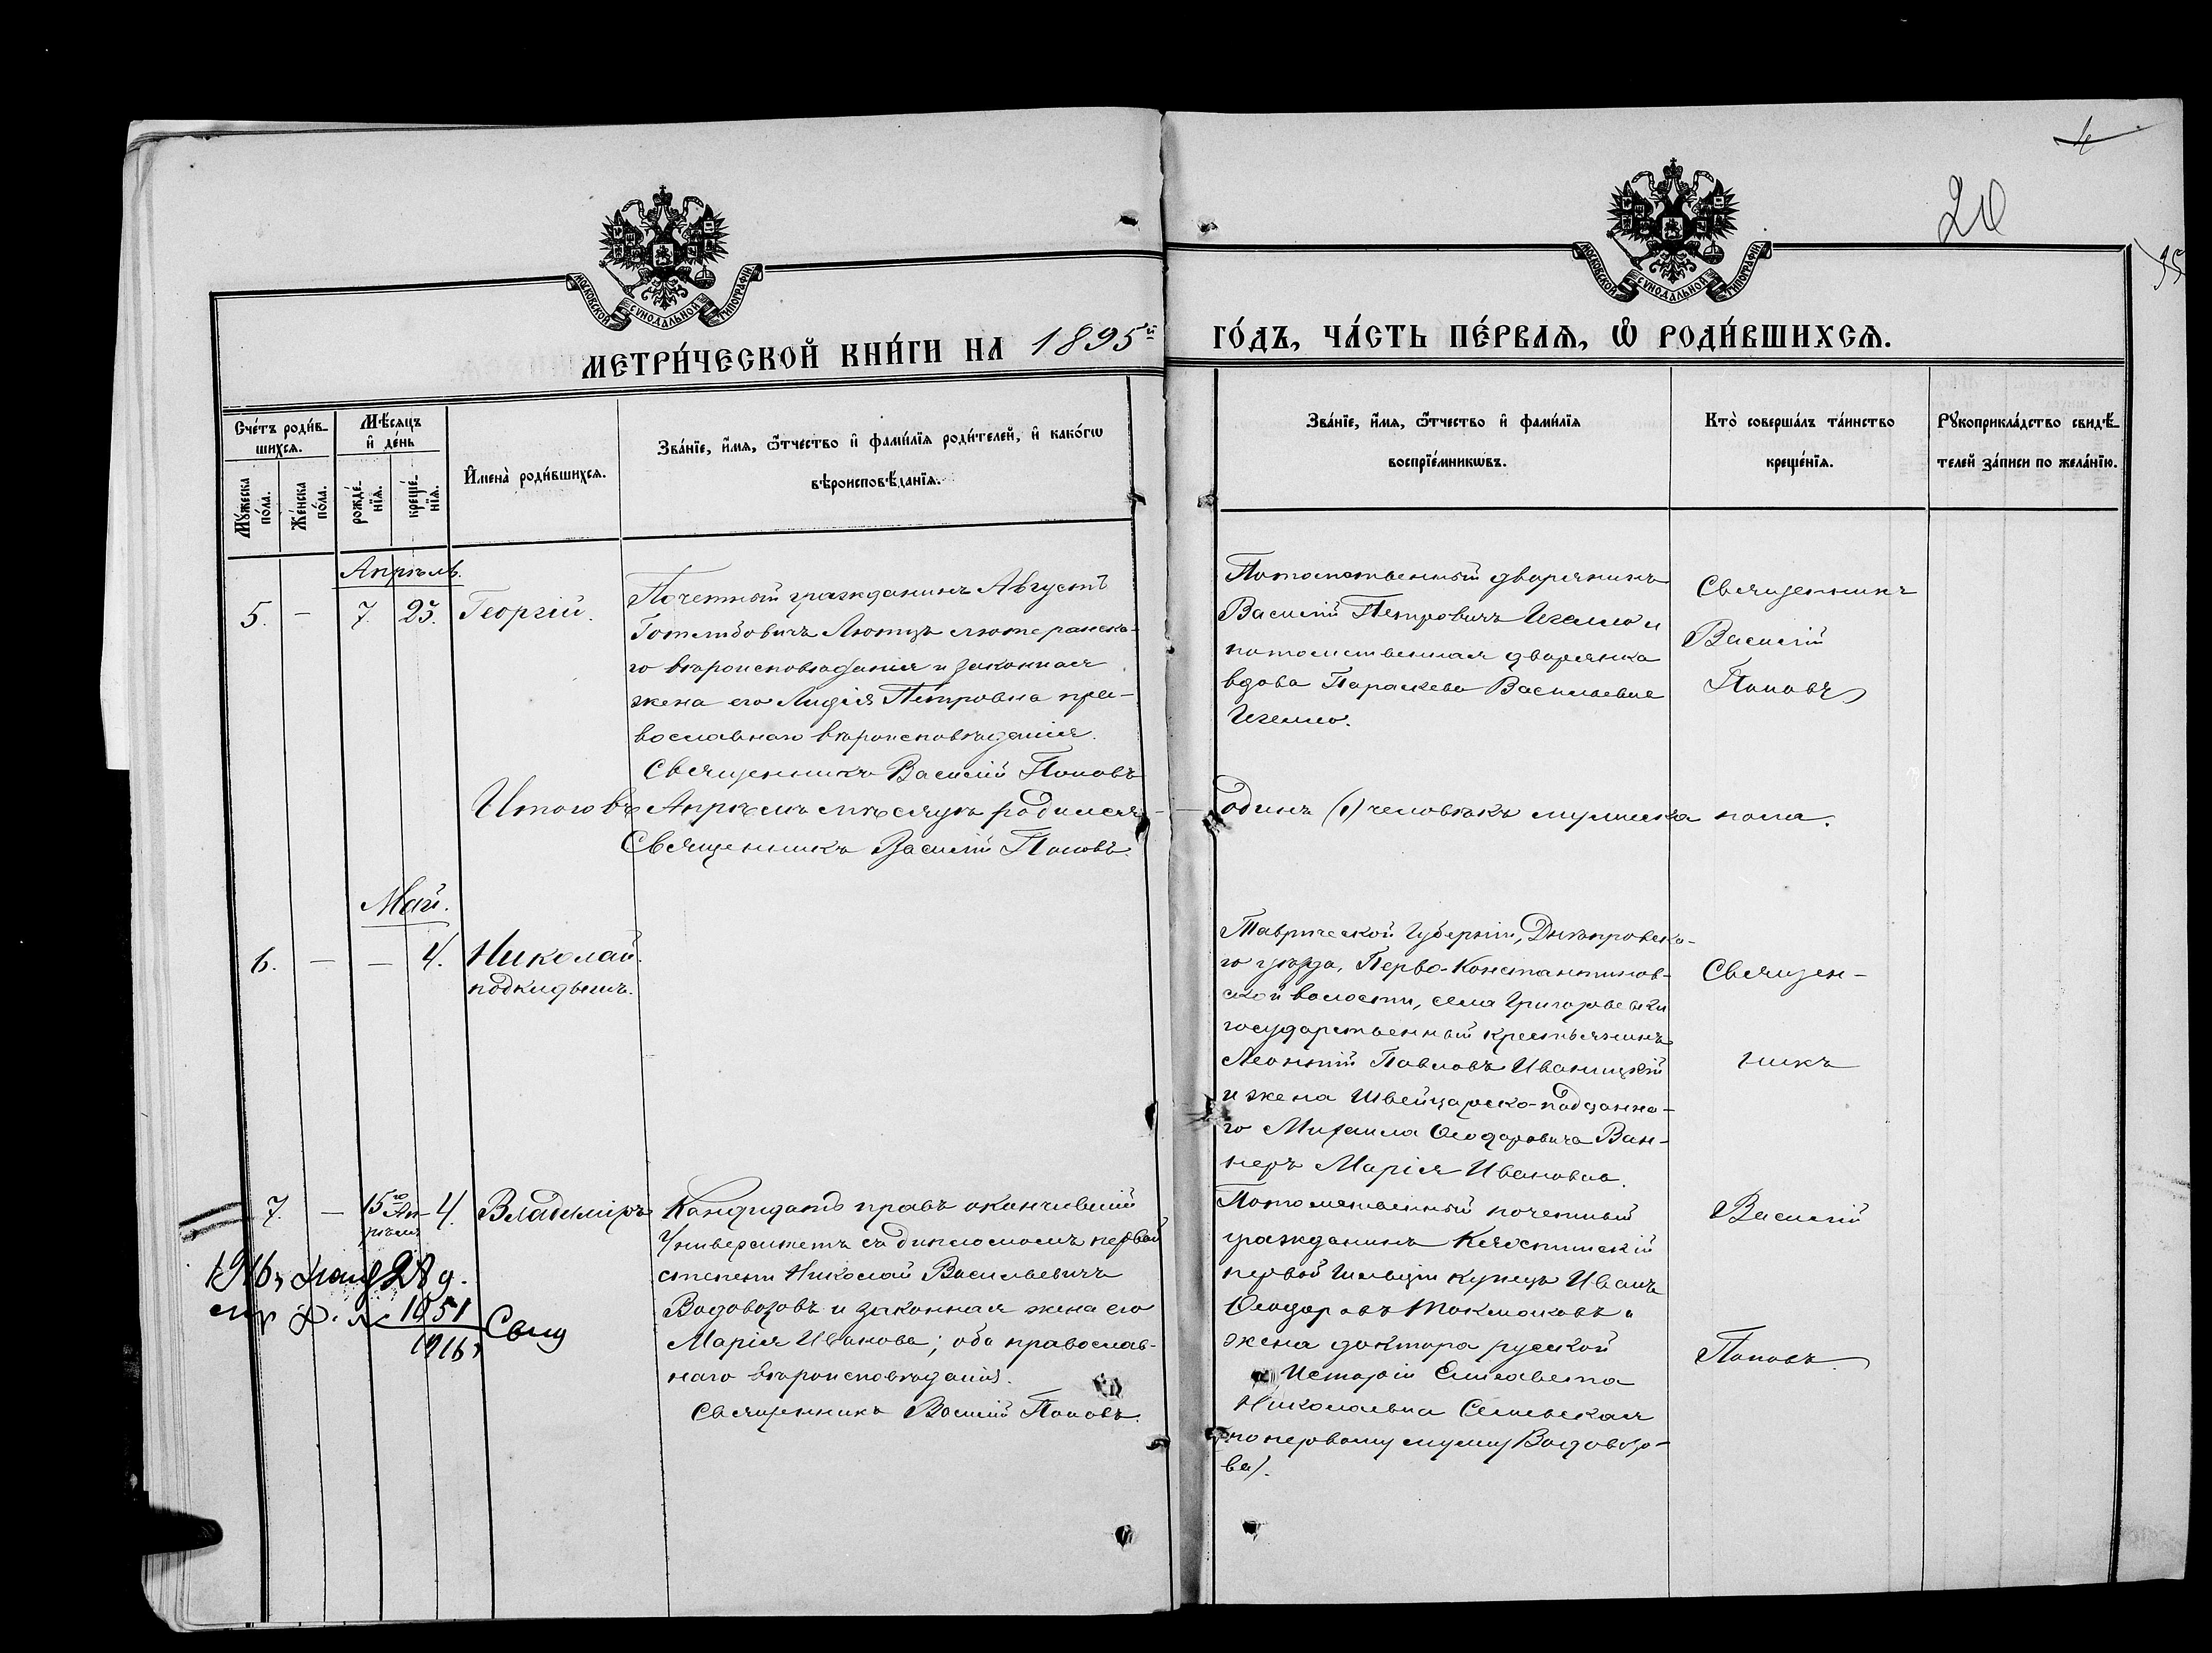 4
20
95
МОСКОВСКОЙ СѴНОДАЛЬНОЙ ТИПОГРАФІИ
МОСКОВСКОЙ СѴНОДАЛЬНОЙ ТИПОГРАФІИ
МЕТРИ́ЧЕСКОЙ КНИ́ГИ НА 1895й ГО́ДЪ, ЧА́СТЬ ПЕ́РВАѦ, Ѡ҆ РОДИ́ВШИХСѦ.
Сче́тъ роди́в-
шихся.
Му́жеска по́ла.
Же́нска по́ла.
Мѣ́сяцъ
и҆ де́нь
рожде́-
нїя.
креще́-
нїя.
И҆мена̀ роди́вшихся.
Зва́нїе, и҆́мя, ѻ҆́тчество и҆ фами́лїя роди́телей, и҆ како́гѡ
вѣроисповѣ́данїя.
Зва́нїе, и҆́мя, ѻ҆́тчество и҆ фами́лїя
воспрїе́мникѡвъ.
Кто̀ соверша́лъ та́инство
креще́нїя.
Рукоприкла́дство свидѣ́-
телей за́писи по жела́нїю.
Апрѣль.
5. – 7. 25. Георгій.
Почетный гражданинъ Августъ
Готлибовичъ Лютцъ лютеранска-
го вѣроисповѣданія и законная
жена его Лидія Петровна пра-
вославнаго вѣроисповѣданія.
Священникъ Василій Поповъ
Потомственный дворянинъ
Василій Петровичъ и
потомственная дворянка
вдова Параскева Васильевна
Священникъ
Василій
Поповъ
Итого въ Апрѣлѣ мѣсяцѣ родился – одинъ (1) человѣкъ мужеска пола.
Священникъ Василій Поповъ.
Май.
6. – – 4. Николай.
подкидышъ.
Таврической Губерніи, Днѣпровска-
го уѣзда, Перво-Константинов-
ской волости, села Григоровки
государственный крестьянинъ
Леонтій Павловъ Иваницкій
и жена Швейцарско-подданна-
го Михаила Ѳеодоровича Ван-
неръ Марія Ивановна.
Священ-
никъ
7. – 15го Ап-
рѣля 4. Владиміръ
Кандидатъ правъ окончившій
Университетъ съ дипломомъ первой
степени Николай Васильевичъ
Водовозовъ и законная жена его
Марія Иванова; оба православ-
наго вѣроисповѣданія.
Священникъ Василій Поповъ.
Потомственный почетный
гражданинъ
первой Гильдіи купецъ Иванъ
Ѳеодоровъ Токмаковъ и
жена доктора русской
Исторіи Елизавета
Николаевна Семевская
по первому мужу Водовозо-
ва).
Василій
Поповъ.
1916 28 д.
1051
1916